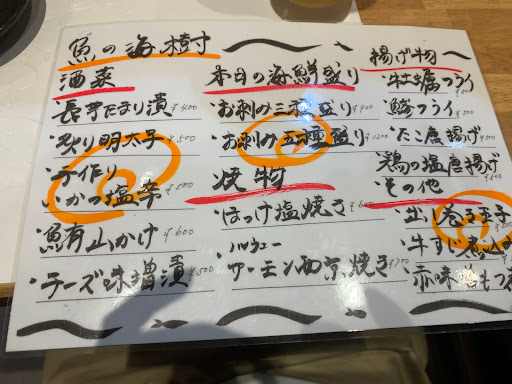 魚の海樹
酒菜
・長芋たまり漬 ¥400
・炙り明太子 ¥500
・手作り
いかの塩辛 ¥500
・魚有山かけ ¥600
・チーズ味噌漬 ¥500
本日の海鮮盛り
・お刺み三種盛り ¥900
・お刺み五種盛り ¥1200
焼物
・ほっけ塩焼き ¥600
・ハルウェー
サーモン西京焼き
揚げ物
・牡蠣フライ
・鯵フライ ¥500
・たこ唐揚げ ¥500
・鶏の塩唐揚げ
その他
・出し巻き玉子
・牛すじ煮込み
・赤味噌もつ煮